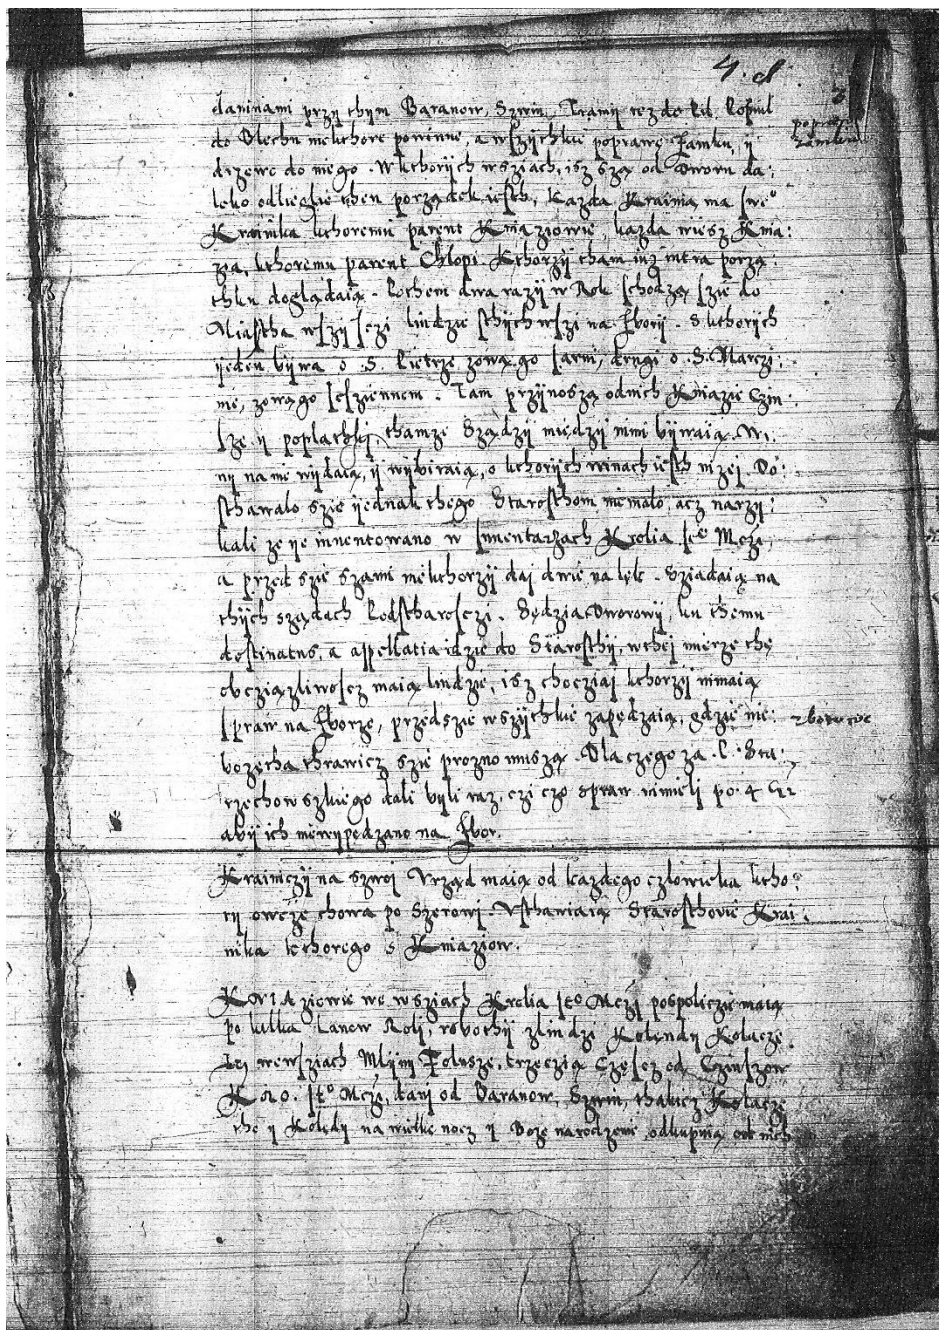 4. d
3
daninami przy thym Baranow, Szwin, Tramy tez do
popra:
Zamku
do Blechu niekthore powinne, a wszythkie poprawę Zamku, y
drzewo do niego. W kthorych wsziach, isz są od Dworu da:
leko odliegłe then porządek iesth, Kazda Kraina ma swe°
Krainika kthoremu parent Kniaziowie, kazda wiesz Knia:
zia, kthoremu parent Chłopi. Kthorzy tham iuz intra porzą:
thku doglądaią. Pothem dwa razy w Rok schodzą szie do
Miastha wszysczi liudzie sthych wszi na Zbory. S kthorych
ieden bywa o S. Pietrze zową go Jarni, drugi o S. Marczi:
nie, zową go Jeszennem. Tam przynoszą od nich Kniazie Czin:
sze y popłathki, thamze Sządzy miedzy nimi bywaią. Wi:
ny na nie wydaią, y wybiraią, o kthorych winach iesth nizej. Do:
sthawało szie iednak thego Starosthom niemało, acz narzy:
kali ze ie inwentowano w Inwentarzach Krolia Je° Mczi,
a przed szie szami niekthorzy daj dwie na lęk. Sziadaią na
thych sządach Podstharosczi. Sędzia Dworowy, ku themu
destinatus, a appellatia idzie do Starosthy, w thej mierze thę
obcziązliwoscz maią liudzie, isz choczia kthorzy nimaią
spraw na Zborze, przedszie wszythkie zapędzaią, gdzie nie:
zborowe
bozętha thrawicz szie prozno muszą. Dla czego za P. Sta:
rzechowszkiego dali byli raz, czi czo spraw nimieli po 4
aby ich niewypędzano na Zbor.
Krainiczy na szwoj Vrząd maią od kazdego człowieka ktho:
ry owcze chowa po Szerowi. Vsthawiaią Starosthowie Krai:
nika kthorego s Kniaziow.
Kniaziowie we wsziach Krolia Je° Mczi pospoliczie maią
po kilka Łanow Roli, robothy z liudzi Kolendy Kołacze.
we wsziach Młyny Folusze, trzeczią Częscz od Czinszow
Kro. Je° Mczi, dani od Baranow, Szwin, thakiesz Kołacze
the y Kolędy na wielke nocz y Boze narodzenie, odkupuią od nich